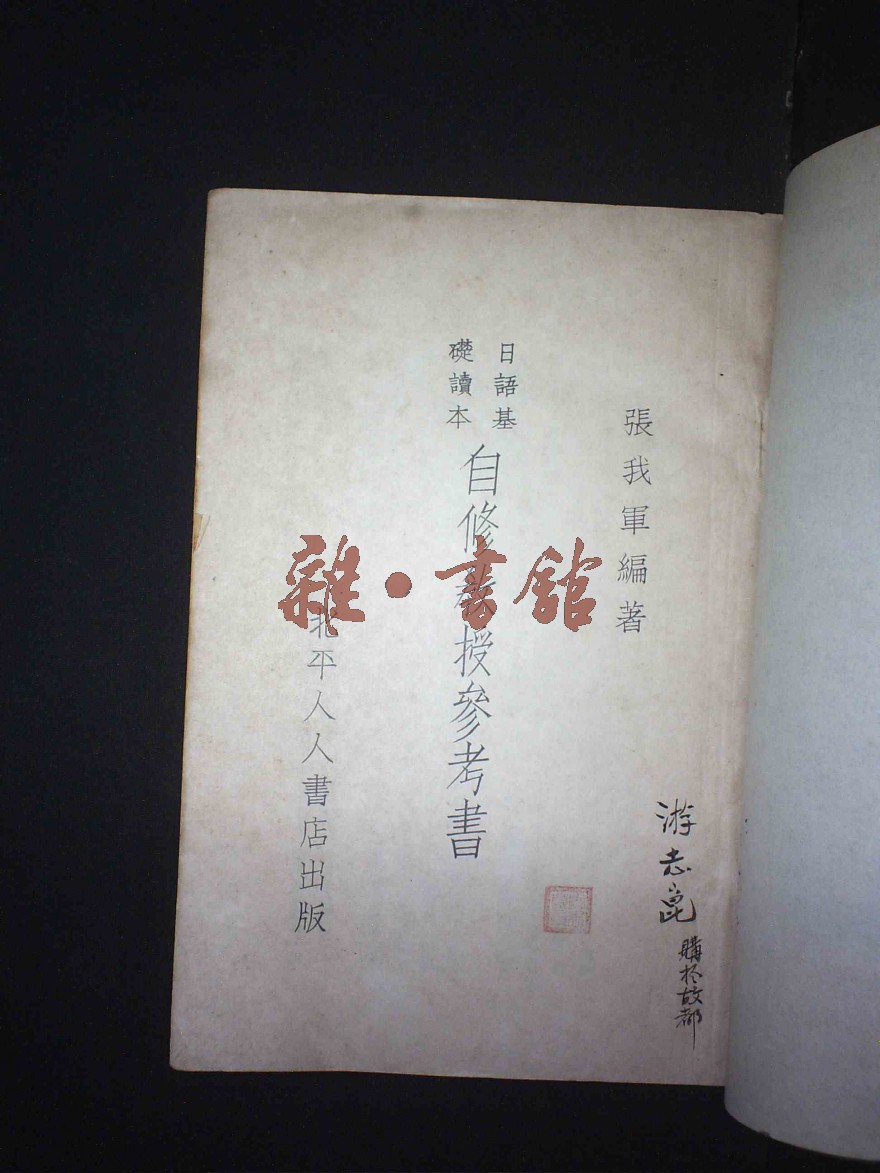 張我軍編著
日語基
礎讀本
自修教授參考書
北平人人書店出版
游志
購於故都
雜·書館